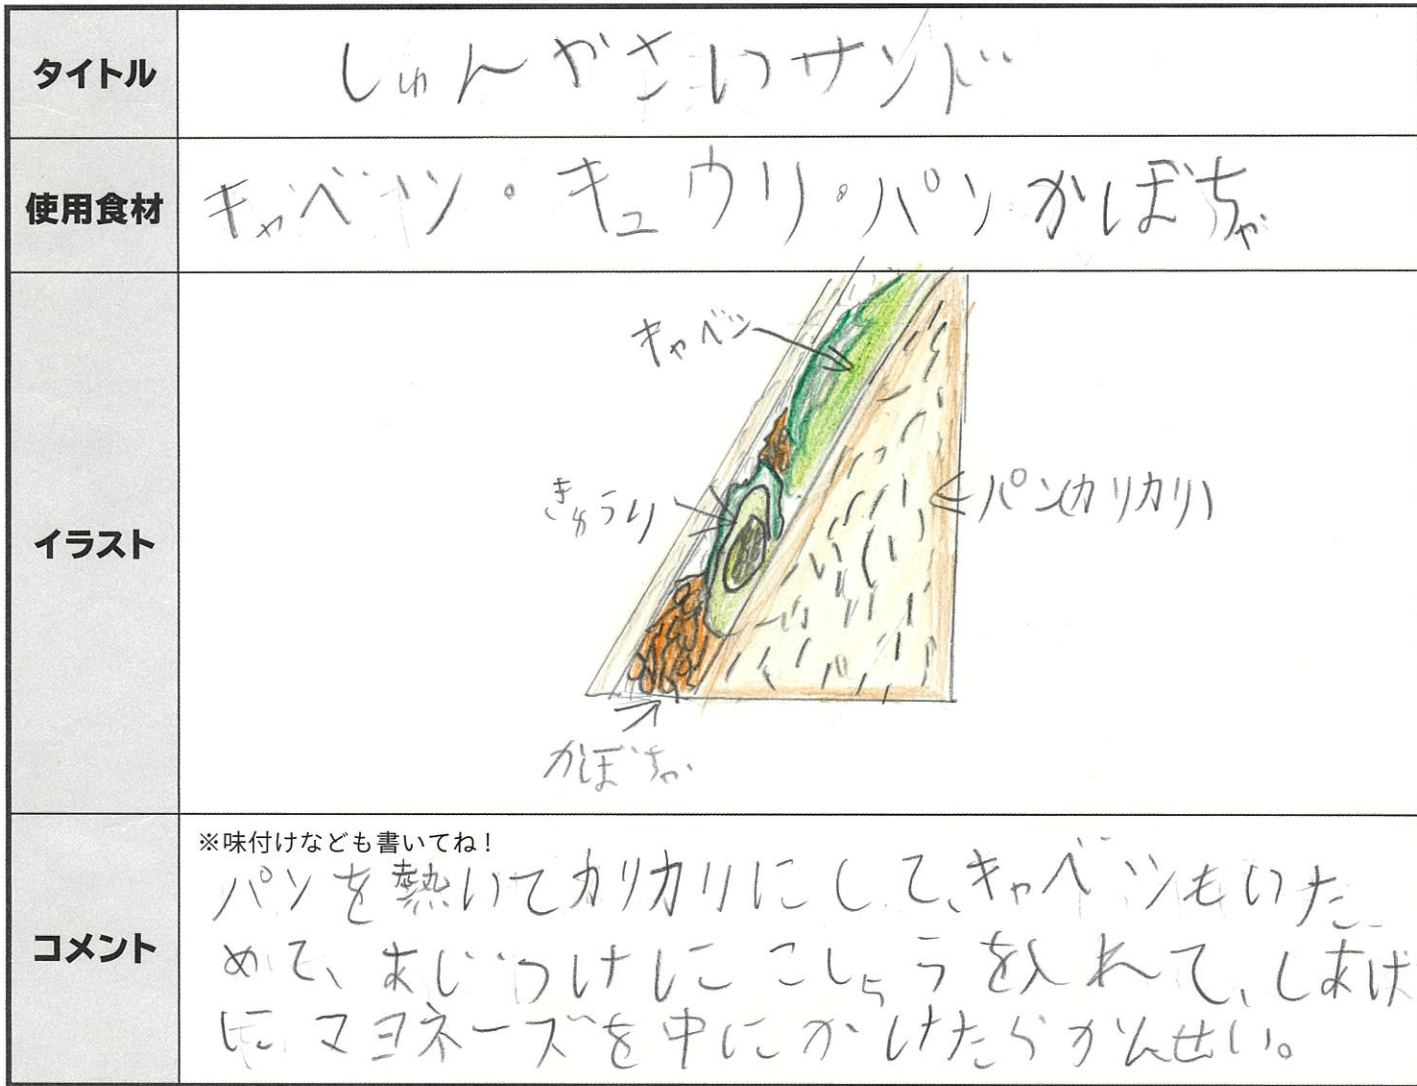 タイトル
しゅんやさいサンド
使用食材
キャベツ・キュウリ・パン かぼちゃ
イラスト
キャベツ
きゅうり
パン(カリカリ)
かぼちゃ
コメント
※味付けなども書いてね!
パンを熱いてカリカリにして、キャベツもいた
めて、あじつけにこしょうを入れて、しあげ
にマヨネーズを中にかけたらかんせい。